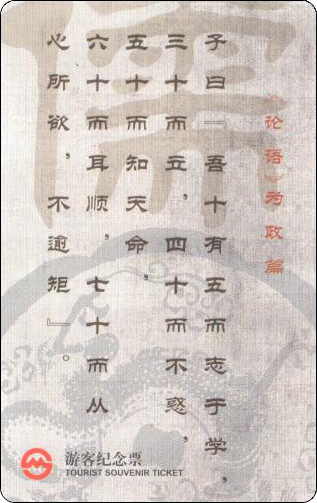 儒
《论语》为政篇
子曰『吾十有五而志于学,
三十而立,四十而不惑,
五十而知天命,
六十而耳顺,七十而从
心所欲,不逾矩』。
游客纪念票
TOURIST SOUVENIR TICKET